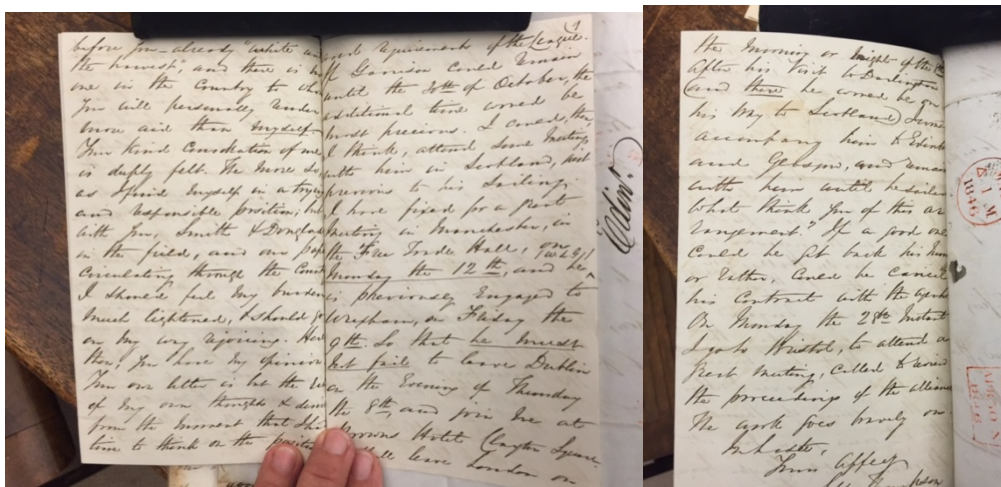 before you – already "white unto
the harvest" and there is no
one in the Country to whom
you will personally render
more aid than myself
Your kind Consideration of me
is deeply felt. The more so
as I find myself in a trying
and responsible position; but
with you, Smith & Douglass
in the field, and our paper
circulating through the Country
I should feel my burden
much lightened, & should go
on my way rejoicing. Here
then, you have my opinion
Your own letter is but the
of my own thoughts &
from the moment that
time to think on the position
9
and requirements of the League.
If Garrison could remain
until the 20th of October, the
additional time would be
most precious. I could, then,
I think, attend some meetings
with him in Scotland, just
previous to his sailing.
I have fixed for a great
meeting in Manchester, in
the Free Trade Hall, on
Monday the 12th, and he
is previously engaged to
Wrexham, on Friday the
9th. So that he must
not fail to leave Dublin
on the Evening of Thursday
the 8th, and join me at
Browns Hotel Clayton Square.
leave London on
Edinr.
the morning or night of the
after his visit to Darlington
(and there he would be on
his way to Scotland)
accompany him to Edinb
and Glasgow, and remain
with him until he sailed
What think you of this ar
rangement? If a good one
could he get back his
or rather, could he cancel
his contract with the agent
On Monday the 28th Instant
I go to Bristol, to attend a
great meeting, called to review
the proceedings of the alliance
The work goes bravely on.
In haste,
Yours affecy
1846